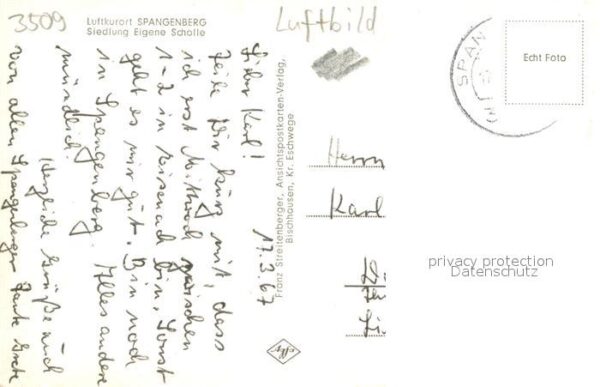 3509
Luftkurort SPANGENBERG
Siedlung Eigene Scholle
Luftbild
SPAN
Echt Foto
17.3.67
Lieber Karl!
Teile Dir kurz mit, dass
ich erst Mittwoch zwischen
1-2 in Eisenach bin. Sonst
geht es mir gut. Bin noch
in Spangenberg. Alles andere
mündlich.
Herzliche Grüße auch
von allen Spangenberger Tante Grete
Franz Streitenberger, Ansichtspostkarten-Verlag,
Bischhausen, Kr. Eschwege
Herrn
Karl
privacy protection
Datenschutz